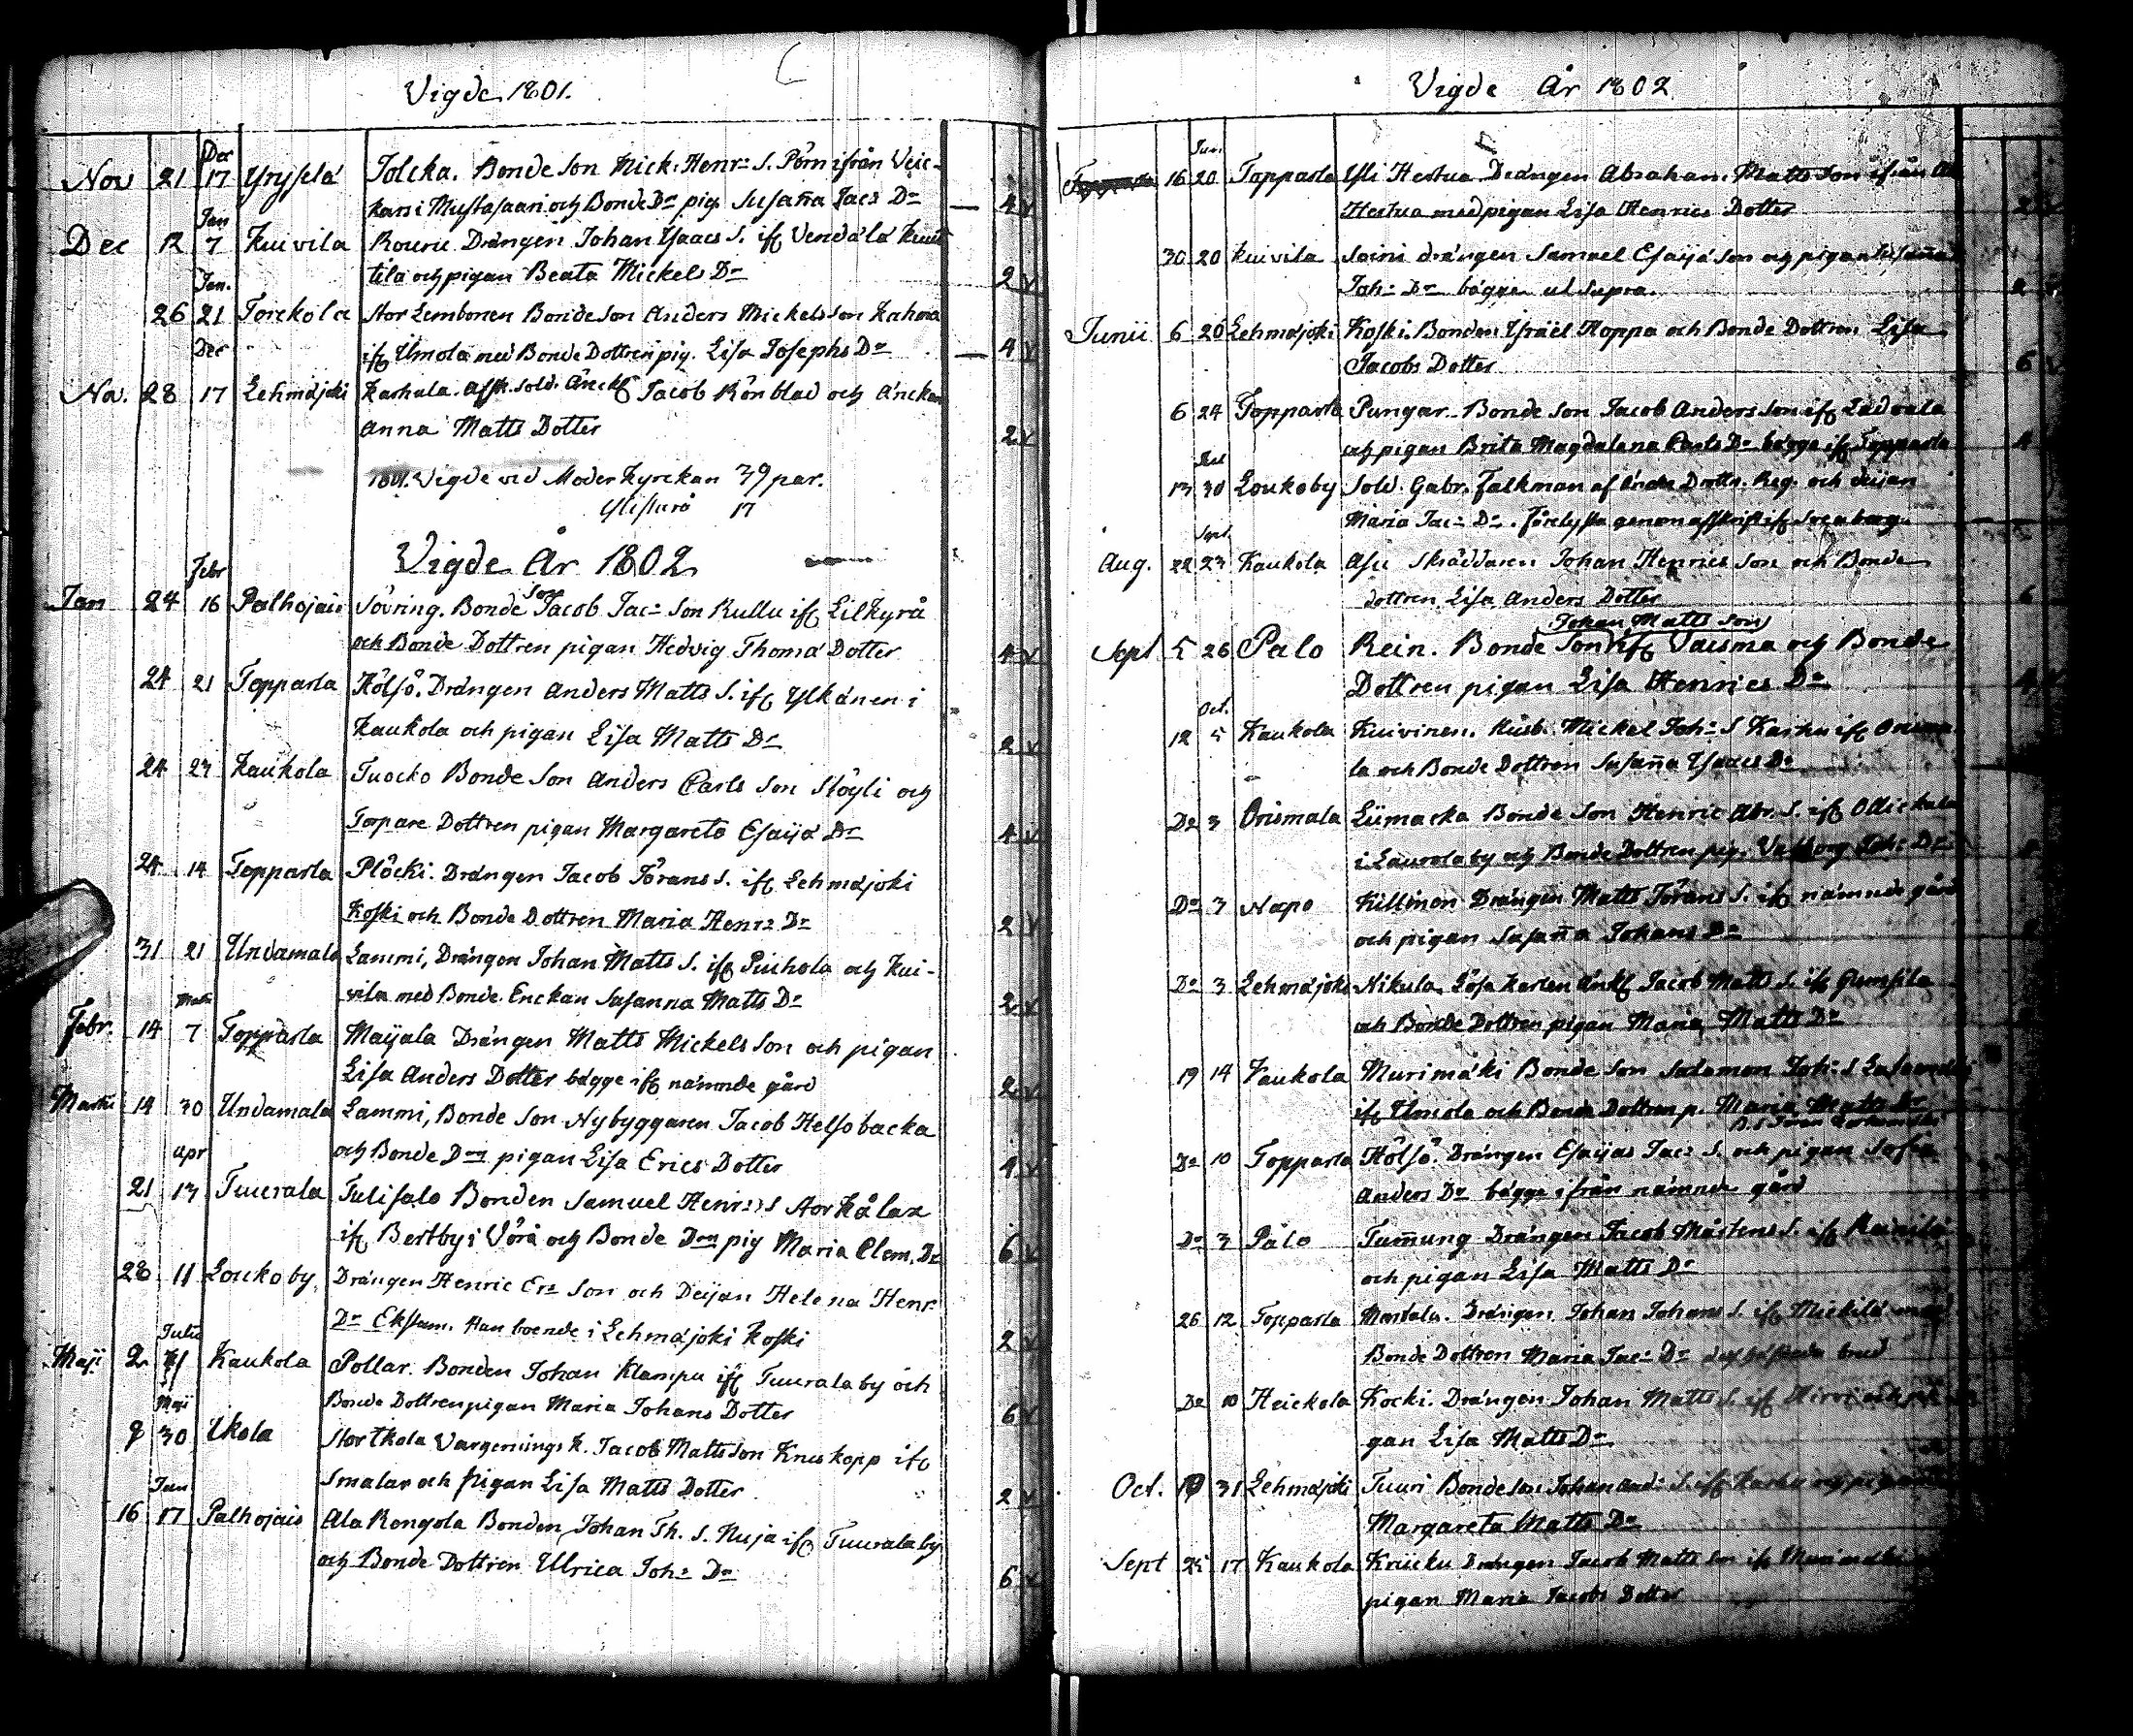 Vigde 1801.
Dec
Nov 21 17 Yryselä Jolcka. Bonde Son Mick. Henr: S. Pörn ifrån Veic-
kars i Mustasaari och Bonde Dr pig. Susaña Jac: Dr 4 v
Jan
Dec 12 7 Kuivila Rouru Drängen Johan Ysaacs S. if Vendälä Kuit
tila och pigan Beata Mickels Dr 2 v
Jan.
26 21 Torckola Stor Lembonen Bonde Son Anders Mickelsson Kahma
if Ulmola med Bonde Dottren pig. Lisa Josephs Dr 4 v
Dec
No. 28 17 Lehmäjoki Karhula. Afsk. Sold. Änckl Jacob Rönblad och änckan
Anna Matts Dotter 2 v
1801. Vigde vid Moder Kyrckan 39 par.
Ylistaro 17
Vigde År 1802
Febr
Jan 24 16 Palhojais Sövring. Bonde Son Jacob Jac: Son Kullu if Lillkyrå
och Bonde Dottren pigan Hedvig Thomä Dotter 4 v
24 21 Topparla Hölsö. Drängen Anders Matts S. if Ylkänen i
Kaukola och pigan Lisa Matts Dr 2 v
24 23 Kaukola Tuocko Bonde Son Anders Carls Son Slöyli och
Torpare Dottren pigan Margareta Esaijä Dr 4 v
24 14 Topparla Plöcki. Drängen Jacob Jörans S. if Lehmäjoki
Koski och Bonde Dottren Maria Henr: Dr 2 v
31 21 Undamala Lammi, Drängen Johan Matts S. if Puhola och Kui-
vila med Bonde Enckan Susanna Matts Dr 2 v
Martii
Febr. 14 7 Topparla Maijala Drängen Matts Mickels Son och pigan
Lisa Anders Dotter bägge if nämnde gård 2 v
Martii 14 30 Undamala Lammi, Bonde Son Nybyggaren Jacob Helsobacka
och Bonde Drn pigan Lisa Erics Dotter 4 v
Apr
21 13 Tuurala Tulisalo Bonden Samuel Henr: S Storkålax
if Bertby i Vörå och Bonde Drn pig Maria Clem. Dr 6 v
28 11 Loukoby Drängen Henric Er: Son och Deijan Helena Henr:
Dr Ekstam. Han boende i Lehmäjoki Koski 2 v
Julii
Maji 2 Kaukola Pollar. Bonden Johan Klampu if Tuurala by och
Bonde Dottren pigan Maria Johans Dotter 6 v
Maji
9 30 Ikola Stor Ikola Vargerings K. Jacob Mattsson Knuskopp if
Smalar och pigan Lisa Matts Dotter 2 v
Jun
16 17 Palhojais Ala Rengola Bonden Johan Th. S. Kuja if Tuurala by
och Bonde Dottren Ulrica Joh: Dr 6 v
Vigde År 1802
Jun.
16 20 Topparla Yli Hertua Drängen Abraham Matts Son ifrån
Hertua med pigan Lisa Henrics Dotter 2
30 20 Kuivila Soini drängen Samuel Esaijä Son och pigan Susaña
Joh: Dr bägge ut Supra. 2
Junii 6 20 Lehmäjoki Koski. Bonden Ysräel Hoppa och Bonde Dottren Lisa
Jacobs Dotter 6 v
6 24 Topparla Pungar. Bonde Son Jacob Anders Son if Ladvala
och pigan Brita Magdalena Carls Dr bägge if Topparla 4
Jul
13 30 Loukoby Sold. Gabr. Falkman af Enke Drott. Reg. och deijan
Maria Jac: Dr. Förelysta genom afskrift if Sveaborg
Sept
Aug. 22 23 Kaukola Asu Skräddaren Johan Henrics Son och Bonde
dottren Lisa Anders Dotter 6
Johan Matts Son
Sept 5 26 Palo Rein. Bonde Son if Vaisma och Bonde
Dottren pigan Lisa Henrics Dr 4
Oct.
12 5 Kaukola Kuivinen. Husb. Mickel Joh: S Karhu if Orisma
la och Bonde Dottren Susaña Ysaacs Dr
Do 3 Orismala Liimacka Bonde Son Henric Abr. S. if Ollickala
i Laurola by och Bonde Dottren pig. Valborg Joh: Dr
Do 3 Napo Killinen Drängen Matts Jörans S. if nämnde gård
och pigan Susaña Johans Dr
Do 3 Lehmäjoki Nikula, Lösa Karlen Änkl Jacob Matts S. if Gumsila
och Bonde Dottren pigan Maria Matts Dr
19 14 Kaukola Murimäki Bonde Son Salomon Joh: S
if Ulmola och Bonde Dottren p. Maria Matts Dr
Do 10 Topparla Hölsö. Drängen Esaijas Jac: S. och pigan Sofia
Anders Dr bägge ifrån nämnde gård
Do 3 Palo Tumung Drängen Jacob Mårtens S. if
och pigan Lisa Matts Dr
26 12 Topparla Martala. Drängen Johan Johans S. if Mickilä med
Bonde Dottren Maria Jac: Dr brud
Do 10 Heickola Kocki. Drängen Johan Matts S. if
gan Lisa Matts Dr
Oct. 19 31 Lehmäjoki Tuuri Bonde Son Johan And: S. if Karhu och pigan
Margareta Matts Dr
Sept 25 17 Kaukola Krücku Drängen Jacob Matts Son if Murimäki
pigan Maria Jacobs Dotter